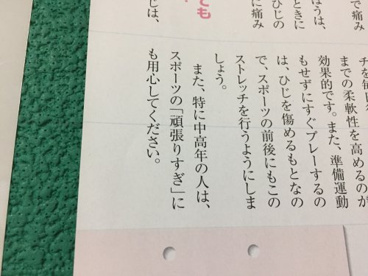 で痛み
ほうは、
ときに
ひじの
に痛み
ても
じは、
チを毎
までの柔軟性を高めるのが
効果的です。また、準備運動
もせずにすぐプレーするの
は、ひじを傷めるもとなの
で、スポーツの前後にもこの
ストレッチを行うようにしま
しょう。
また、特に中高年の人は、
スポーツの「頑張りすぎ」に
も用心してください。